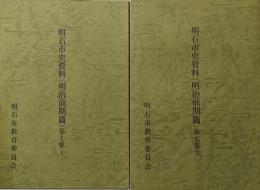 明石市史資料(明治前期篇)第七集ノ上
明石市教育委員会
明石市史資料(明治前期篇)第七集ノ下
明石市教育委員会